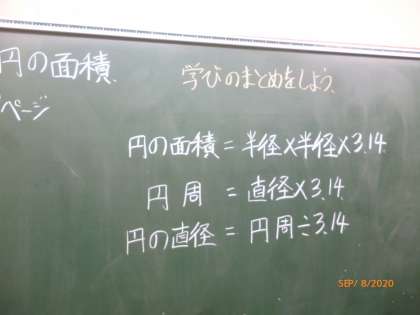 円の面積
学びのまとめをしよう。
ページ
円の面積＝半径×半径×3.14
円周＝直径×3.14
円の直径＝円周÷3.14
SEP/ 8/2020